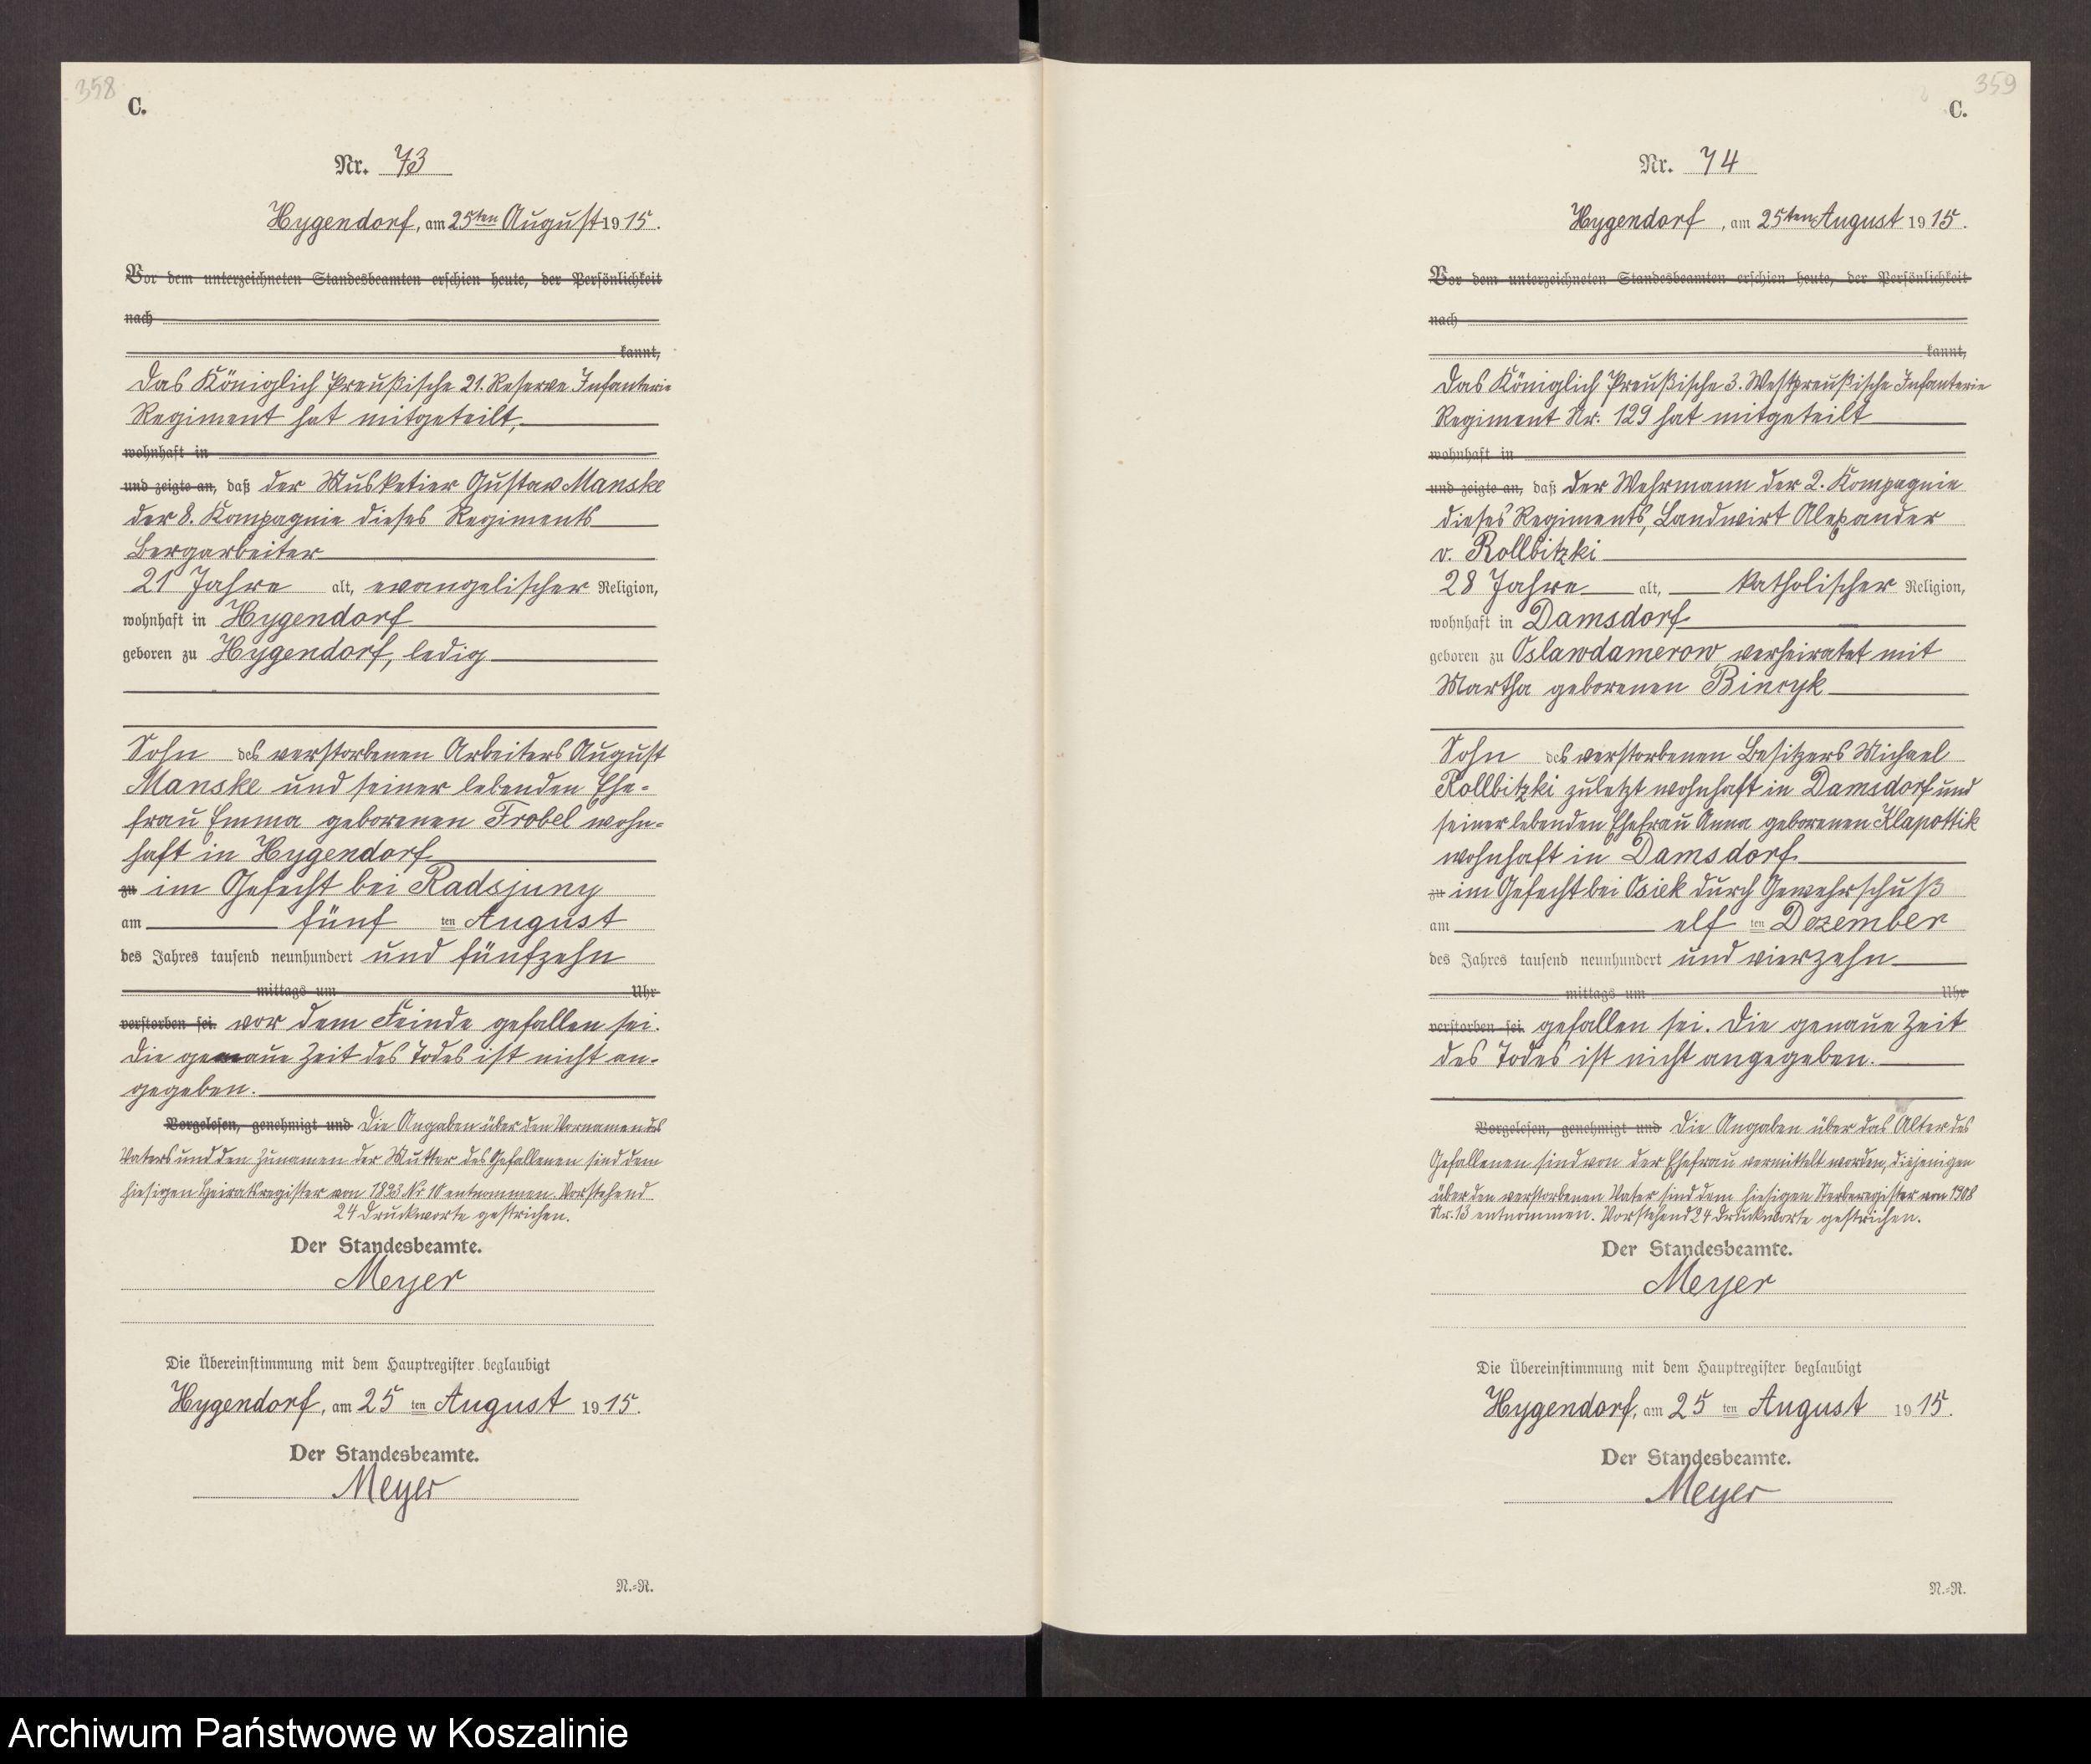 358
C.
Nr. 73
Hygendorf, am 25ten August 1915.
Vor dem unterzeichneten Standesbeamten erschien heute, der Persönlichkeit
nach
kannt,
Das Königlich Preußische 21. Reserve Infanterie
Regiment hat mitgeteilt,
wohnhaft in
und zeigte an, daß der Musketier Gustav Manske
der 8. Kompagnie dieses Regiments
Bergarbeiter
21 Jahre alt, evangelischer Religion,
wohnhaft in Hygendorf
geboren zu Hygendorf, ledig
Sohn des verstorbenen Arbeiters August
Manske und seiner lebenden Ehe-
frau Emma geborenen Frobel wohn-
haft in Hygendorf
zu im Gefecht bei Radsjuny
am fünf ten August
des Jahres tausend neunhundert und fünfzehn
mittags um Uhr
verstorben sei. vor dem Feinde gefallen sei.
Die genaue Zeit des Todes ist nicht an-
gegeben.
Vorgelesen, genehmigt und Die Angaben über den Vornamen des
Vaters und den Zunamen der Mutter des Gefallenen sind dem
hiesigen Heiratsregister von 1893 Nr 10 entnommen. Vorstehend
24 Druckworte gestrichen.
Der Standesbeamte.
Meyer
Die Übereinstimmung mit dem Hauptregister beglaubigt
Hygendorf, am 25 ten August 1915.
Der Standesbeamte.
Meyer
N.-R.
359
C.
Nr. 74
Hygendorf, am 25ten August 1915.
Vor dem unterzeichneten Standesbeamten erschien heute, der Persönlichkeit
nach
kannt,
Das Königlich Preußische 3. Westpreußische Infanterie
Regiment Nr. 129 hat mitgeteilt
wohnhaft in
und zeigte an, daß der Wehrmann der 2. Kompagnie
dieses Regiments, Landwirt Alexander
v. Rollbitzki
28 Jahre alt, katholischer Religion,
wohnhaft in Damsdorf
geboren zu Oslawdamerow, verheiratet mit
Martha geborenen Bincyk
Sohn des verstorbenen Besitzers Michael
Rollbitzki zuletzt wohnhaft in Damsdorf und
seiner lebenden Ehefrau Anna geborenen Klapottik
wohnhaft in Damsdorf
zu im Gefecht bei Osiek durch Gewehrschuß
am elf ten Dezember
des Jahres tausend neunhundert und vierzehn
mittags um Uhr
verstorben sei. gefallen sei. Die genaue Zeit
des Todes ist nicht angegeben.
Vorgelesen, genehmigt und Die Angaben über das Alter des
Gefallenen sind von der Ehefrau vermittelt worden, diejenigen
über den verstorbenen Vater sind dem hiesigen Sterberegister von 1908
Nr. 13 entnommen. Vorstehend 24 Druckworte gestrichen.
Der Standesbeamte.
Meyer
Die Übereinstimmung mit dem Hauptregister beglaubigt
Hygendorf, am 25 ten August 1915.
Der Standesbeamte.
Meyer
N.-R.
Archiwum Państwowe w Koszalinie